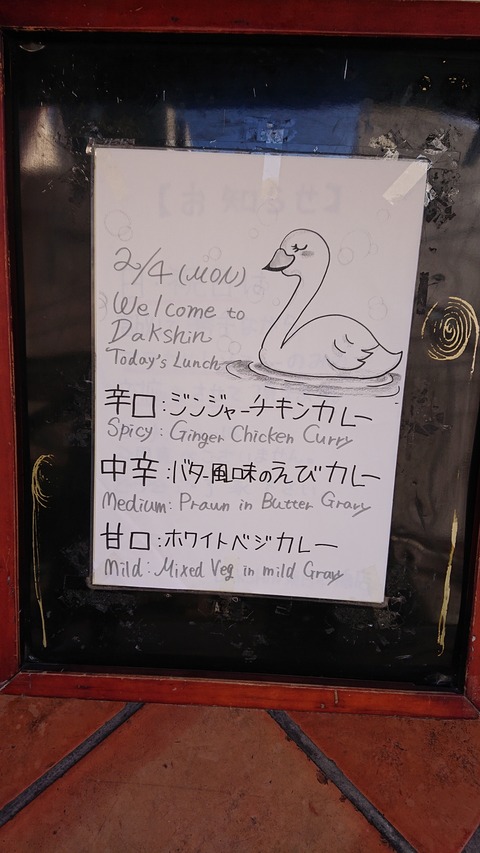 2/4 (MON)
Welcome to
Dakshin
Today's Lunch
辛口:ジンジャーチキンカレー
Spicy: Ginger Chicken Curry
中辛:バター風味のえびカレー
Medium: Prawn in Butter Gravy
甘口:ホワイトベジカレー
Mild: Mixed Veg in mild Gravy